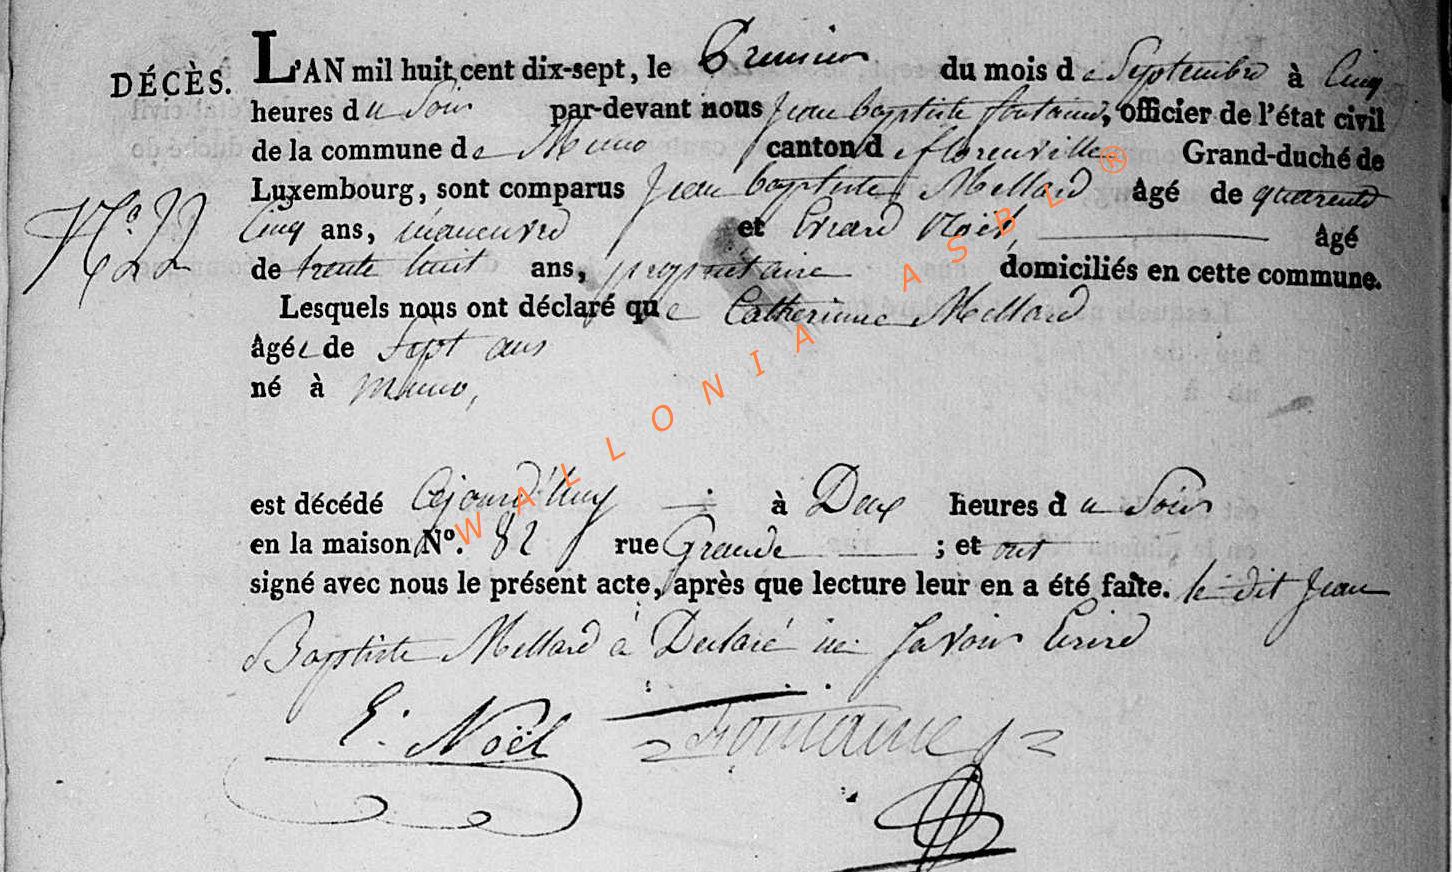 DÉCÈS. L'AN mil huit cent dix-sept, le Premier du mois de Septembre à Cinq
heures du Soir par-devant nous Jean baptiste fontaine, officier de l'état civil
de la commune de Muno canton de florenville Grand-duché de
Luxembourg, sont comparus Jean baptiste Mellard âgé de quarente
Cinq ans, maneuvre et Evrard Noël, âgé
de trente huit ans, propriétaire domiciliés en cette commune.
Lesquels nous ont déclaré que Catherinne Mellard
âgée de Sept ans
né à Muno,
est décédé Cejourd'huy à Deux heures du Soir
en la maison N°. 82 rue Grande ; et ont
signé avec nous le présent acte, après que lecture leur en a été faite. le dit Jean
Baptiste Mellard à Declaré ne Savoir Ecrire
E. Noël Fontaine
N.° 22
WALLONIA ASBL ®